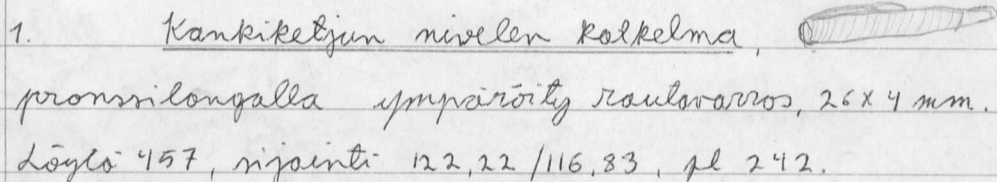 1. Kankiketjun nivelen katkelma,
pronssilangalla ympäröity rautavarras, 26 x 4 mm.
Löytö 457, sijainti 122,22 / 116,83, pl 242.